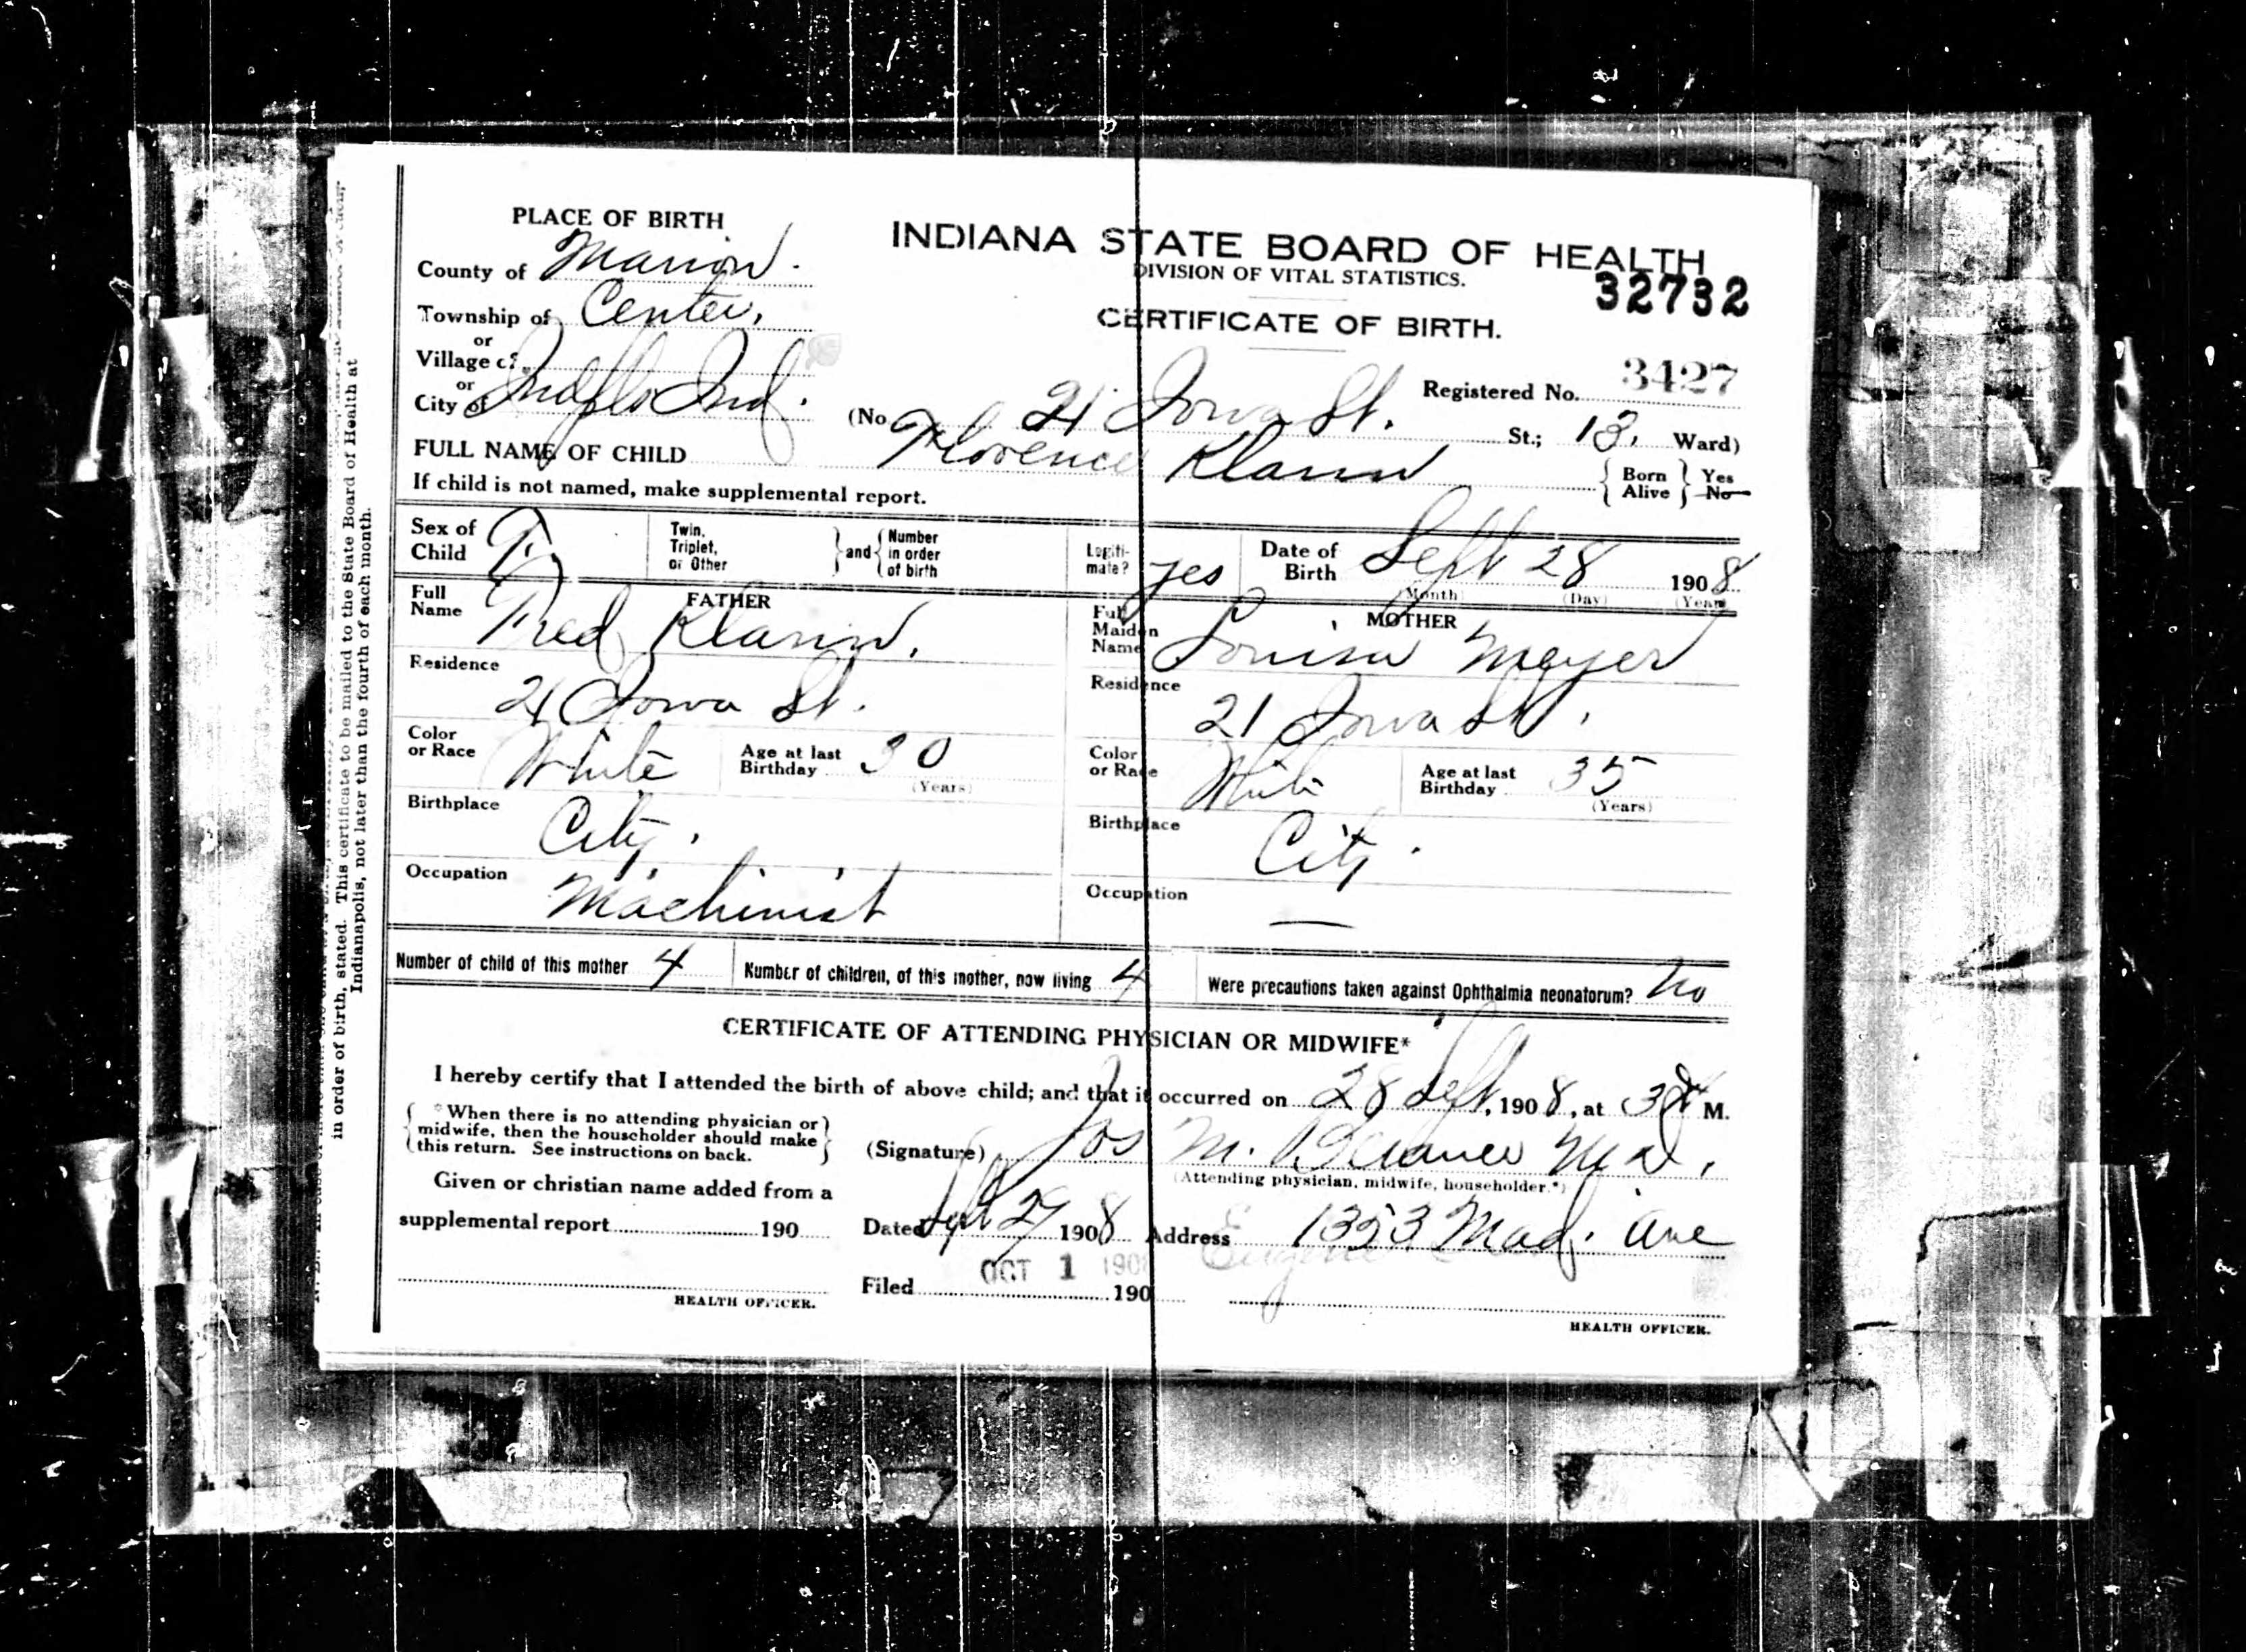 PLACE OF BIRTH
INDIANA STATE BOARD OF HEALTH
DIVISION OF VITAL STATISTICS.
32732
CERTIFICATE OF BIRTH.
County of Marion.
Township of Center.
or
Village of
or
City of Indpls Ind.
Registered No. 3427
(No. 21 Iowa St. St.; 13. Ward)
FULL NAME OF CHILD Florence Klann
Born Alive Yes No
If child is not named, make supplemental report.
Sex of Child F.
Twin, Triplet, or Other
and Number in order of birth
Legiti-mate? yes
Date of Birth Sept 28 1908
(Month) (Day) (Year)
FATHER
Full Name Fred Klann.
Residence
21 Iowa St.
Color or Race White
Age at last Birthday 30
(Years)
Birthplace
City.
Occupation
Machinist
MOTHER
Full Maiden Name Louisa Meyer
Residence
21 Iowa St.
Color or Race White
Age at last Birthday 35
(Years)
Birthplace
City.
Occupation
—
Number of child of this mother 4
Number of children, of this mother, now living 4
Were precautions taken against Ophthalmia neonatorum? No
CERTIFICATE OF ATTENDING PHYSICIAN OR MIDWIFE*
I hereby certify that I attended the birth of above child; and that it occurred on 28 Sept, 1908, at 3 M.
*When there is no attending physician or
midwife, then the householder should make
this return. See instructions on back.
(Signature) Jos M. M.D.
(Attending physician, midwife, householder.*)
Given or christian name added from a
supplemental report 190
Dated Sept 29 1908 Address 1353 Mad. Ave
OCT 1 190
Filed 190
Eugene
HEALTH OFFICER.
HEALTH OFFICER.
in order of birth, stated. This certificate to be mailed to the State Board of Health at
Indianapolis, not later than the fourth of each month.